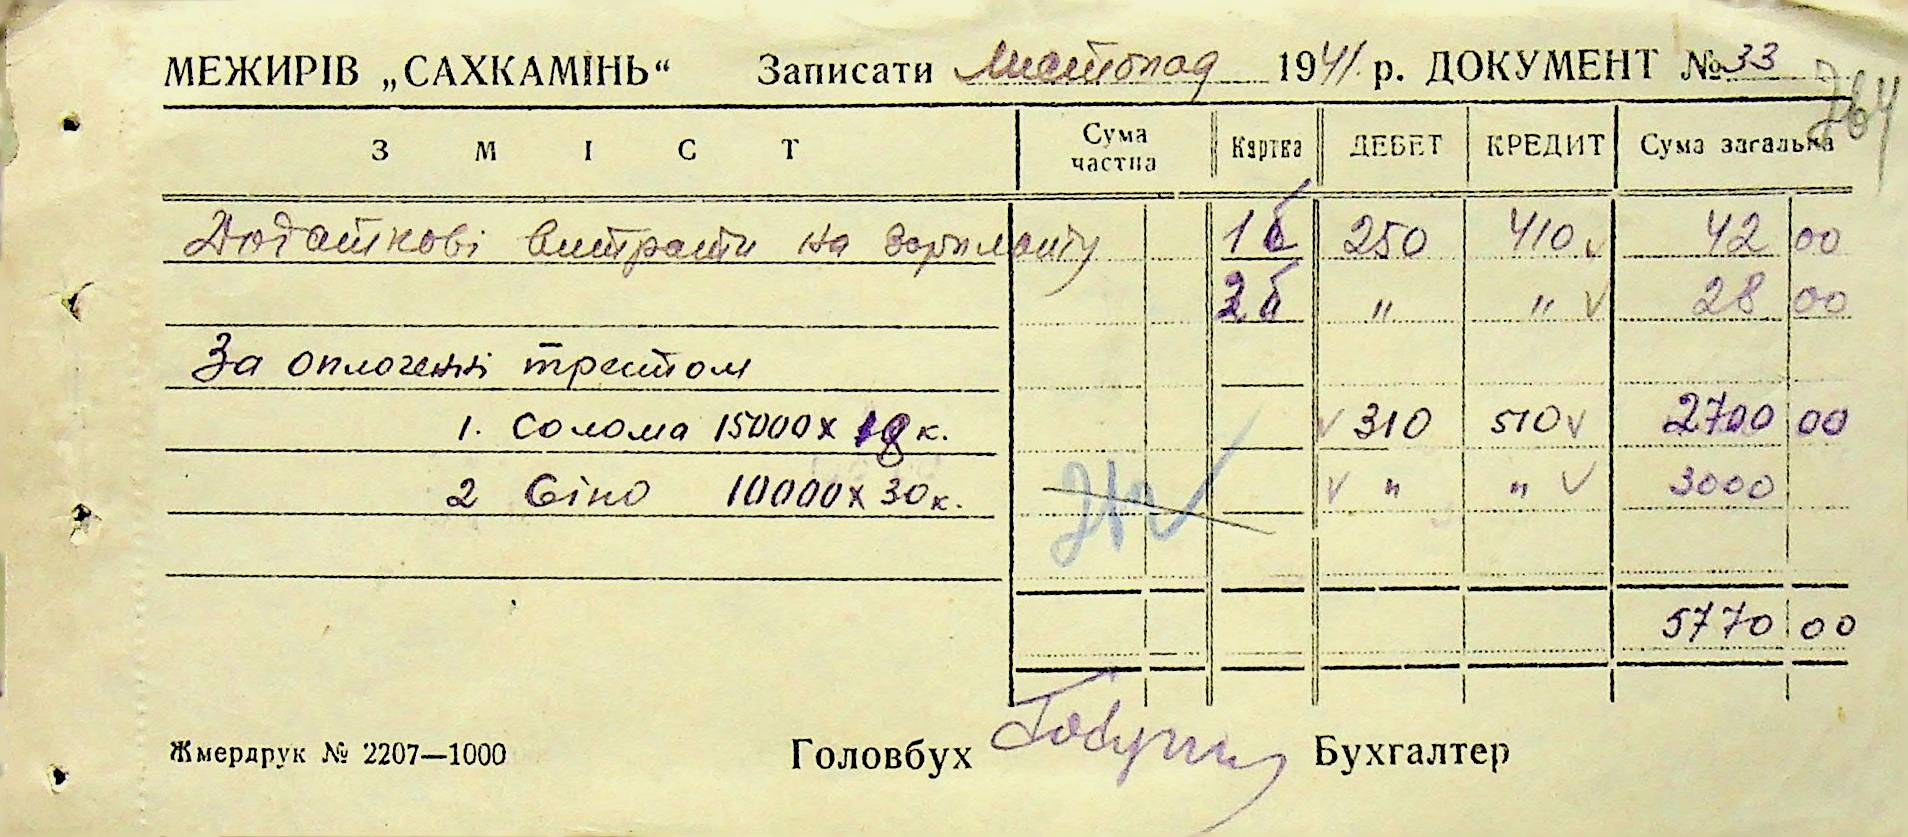 МЕЖИРІВ „САХКАМІНЬ“ Записати Листопад 1941 р. ДОКУМЕНТ № 33
764
ЗМІСТ Сума частна Картка ДЕБЕТ КРЕДИТ Сума загальна
Додаткові витрати на зарплату 1б 250 410 v 42 00
2б " " v 28 00
За оплочені трестом
1. Солома 15000 х 18 к. v 310 510 v 2700 00
2 Сіно 10000 х 30 к. v " " v 3000
5770 00
Жмердрук № 2207—1000 Головбух Бухгалтер